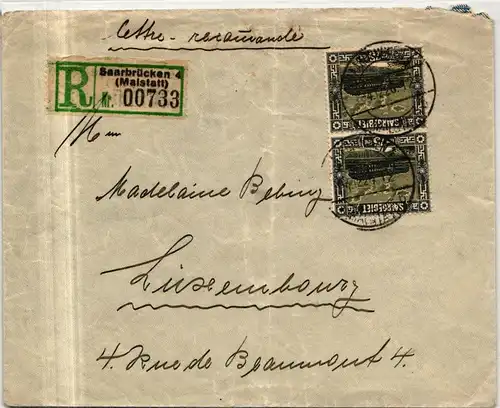 lettre - recommandé
Saarbrücken 4
(Malstatt)
R Nr. 00733
Mme
Madelaine Bebing
Luxembourg
4. Rue de Beaumont 4.
SAARGEBIET
SAARGEBIET